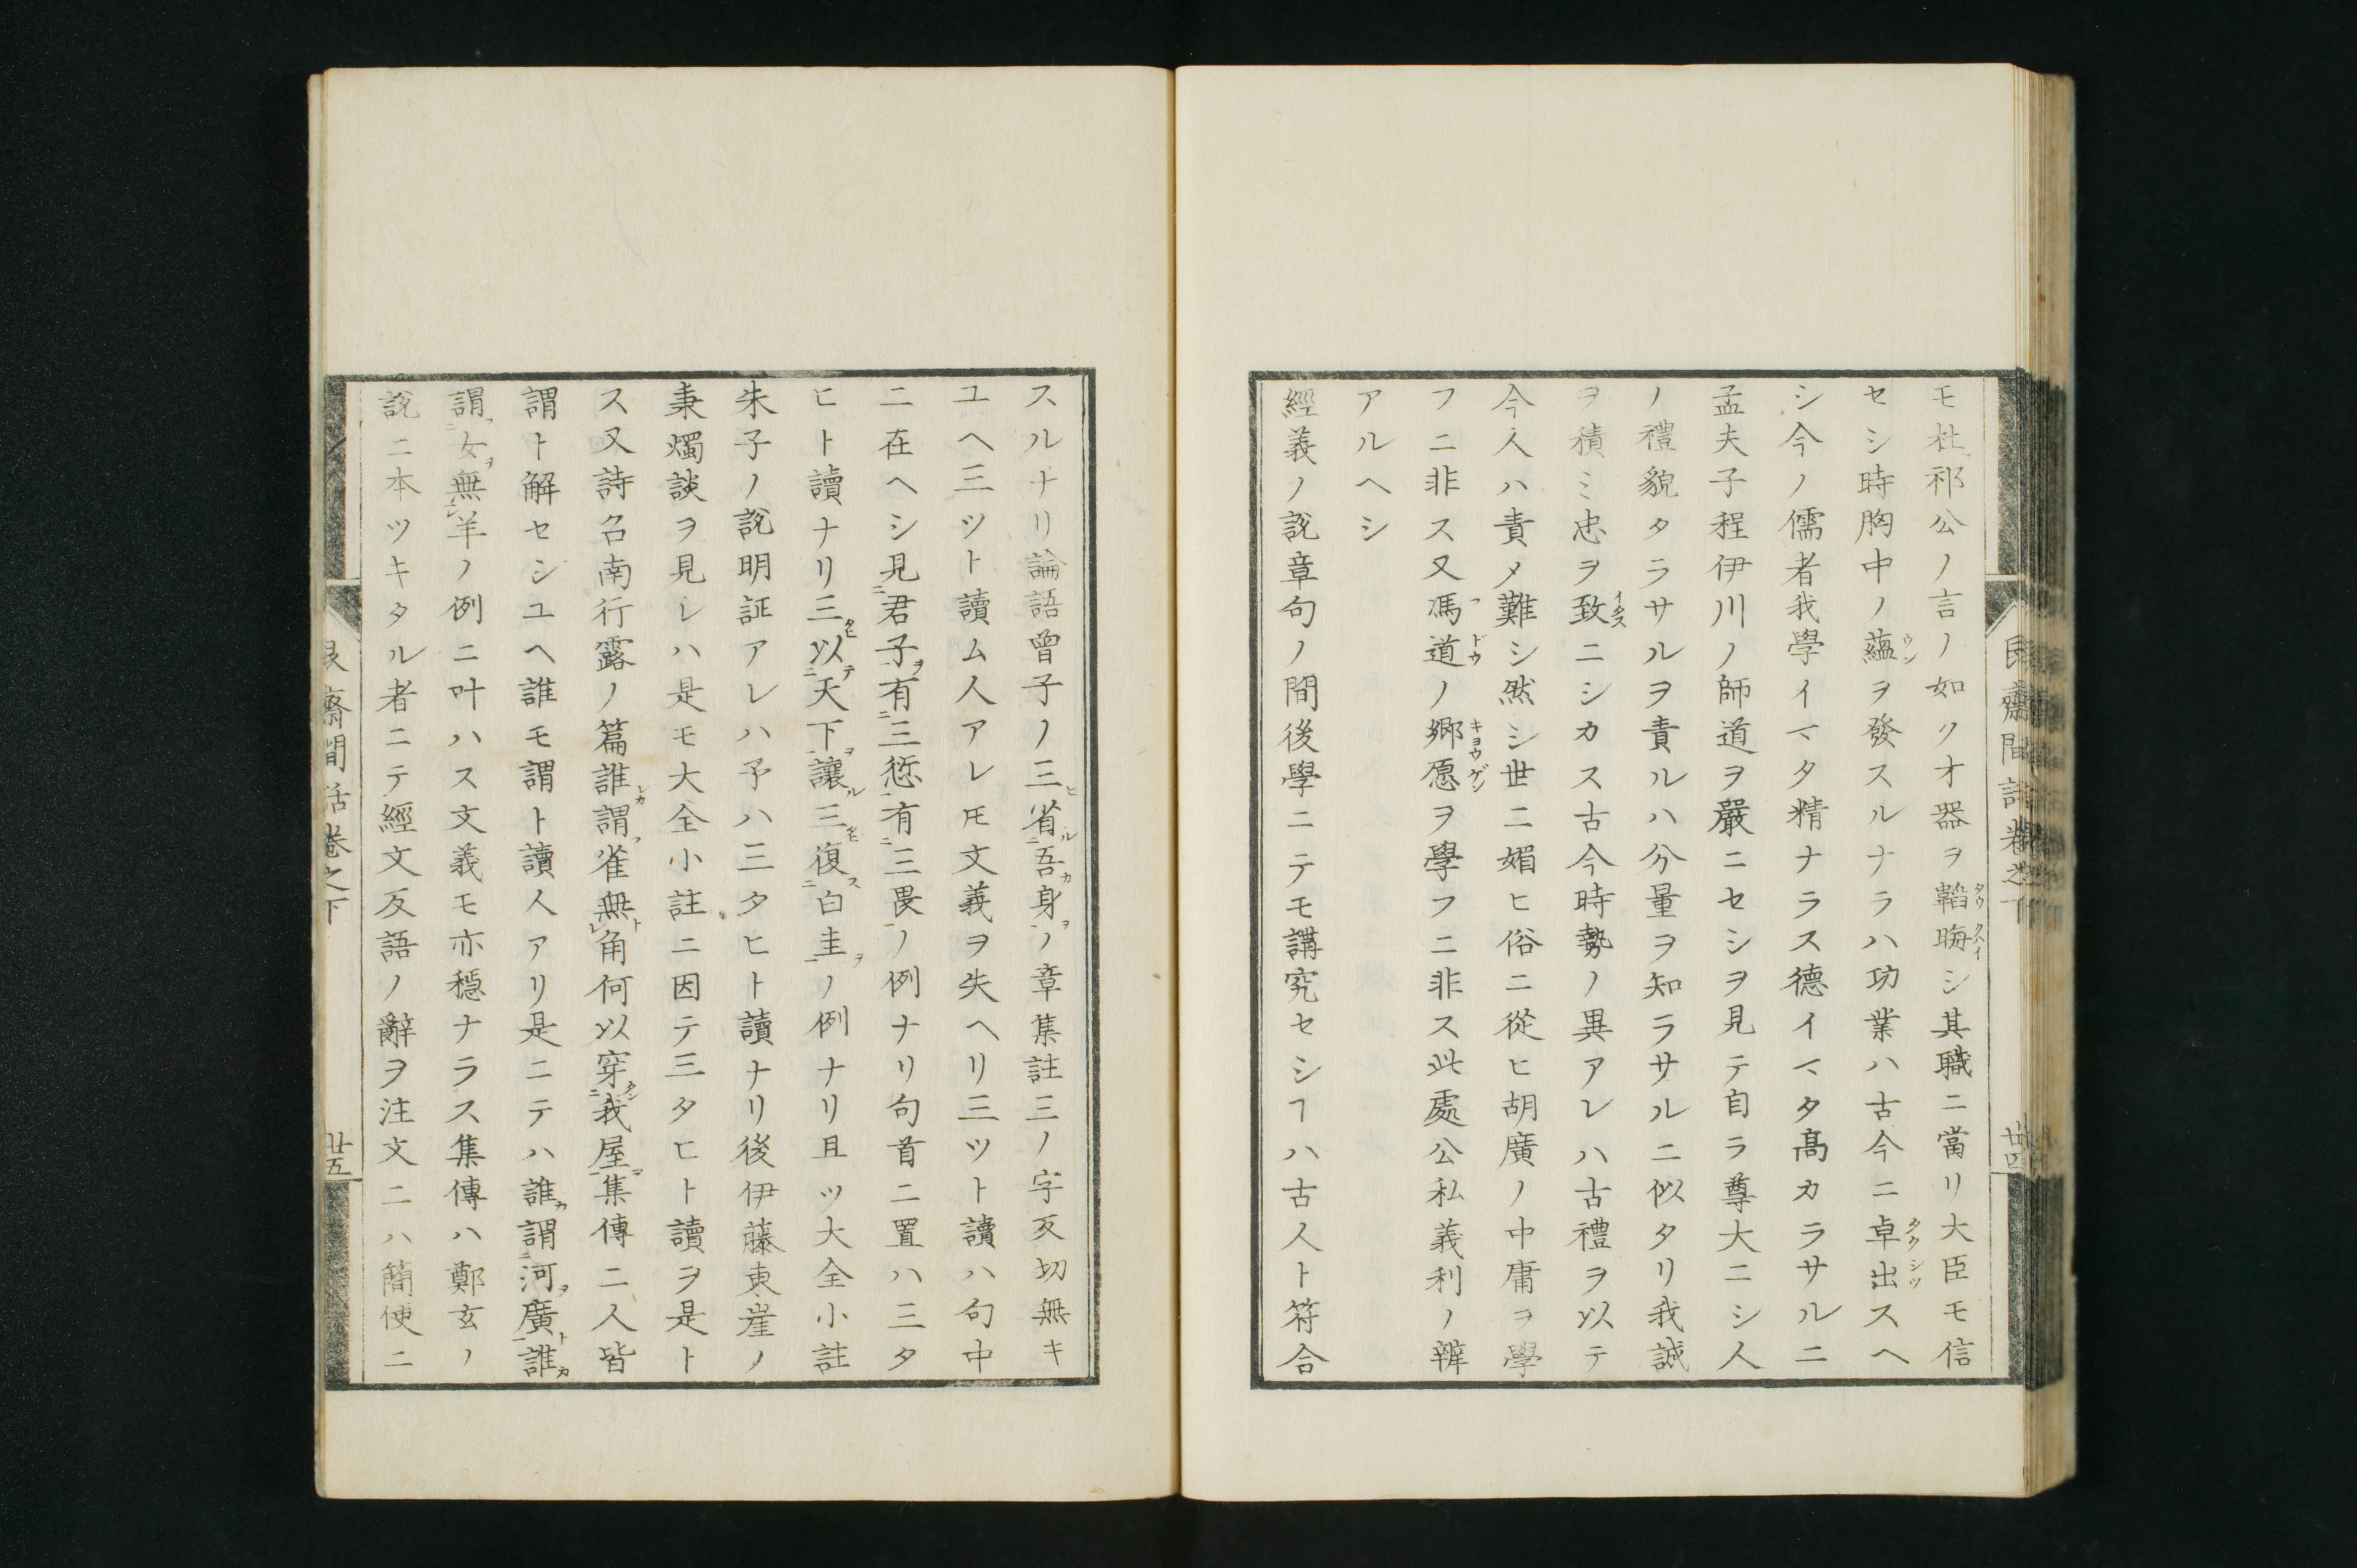 モ杜祁公ノ言ノ如ク才器ヲ韜晦シ其職ニ當リ大臣モ信
セシ時胸中ノ蘊ヲ發スルナラハ功業ハ古今ニ卓出スヘ
シ今ノ儒者我學イマタ精ナラス德イマタ高カラサルニ
孟夫子程伊川ノ師道ヲ嚴ニセシヲ見テ自ラ尊大ニシ人
ノ禮貌タラサルヲ責ルハ分量ヲ知ラサルニ似タリ我誠
ヲ積ミ忠ヲ致ニシカス古今時勢ノ異アレハ古禮ヲ以テ
今人ハ責メ難シ然シ世ニ媚ヒ俗ニ從ヒ胡廣ノ中庸ヲ學
フニ非ス又馮道ノ郷愿ヲ學フニ非ス此處公私義利ノ辨
アルヘシ
經義ノ說章句ノ間後學ニテモ講究セシヿハ古人ト符合
スルナリ論語曾子ノ三省吾身ノ章集註三ノ字反切無キ
ユヘ三ツト讀ム人アレ𪜈文義ヲ失ヘリ三ツト讀ハ句中
ニ在ヘシ見君子有三愆有三畏ノ例ナリ句首ニ置ハ三タ
ヒト讀ナリ三以天下讓三復白圭ノ例ナリ且ツ大全小註
朱子ノ說明証アレハ予ハ三タヒト讀ナリ後伊藤東崖ノ
秉燭談ヲ見レハ是モ大全小註ニ因テ三タヒト讀ヲ是ト
ス又詩召南行露ノ篇誰謂雀無角何以穿我屋集傳ニ人皆
謂ト解セシユヘ誰モ謂ト讀人アリ是ニテハ誰謂河廣誰
謂女無羊ノ例ニ叶ハス文義モ亦穩ナラス集傳ハ鄭玄ノ
說ニ本ツキタル者ニテ經文反語ノ辭ヲ注文ニハ簡便ニ
艮齋閒話卷之下
廿五